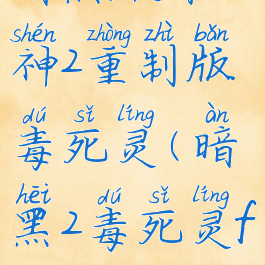 shén zhòng zhì bǎn
神2重制版
dú sǐ líng àn
毒死灵(暗
hēi dú sǐ líng
黑2毒死灵f